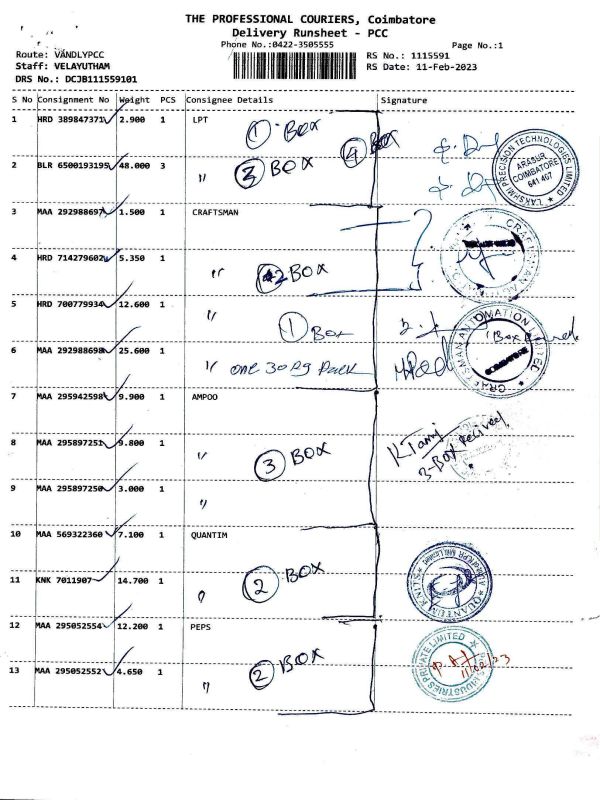 THE PROFESSIONAL COURIERS, Coimbatore
Delivery Runsheet - PCC
Phone No.:0422-3505555
Page No.:1
Route: VANDLYPCC
RS No.: 1115591
Staff: VELAYUTHAM
RS Date: 11-Feb-2023
DRS No.: DCJB111559101
S No Consignment No Weight PCS Consignee Details Signature
1 HRD 389847371 2.900 1 LPT
1 BOX
4 BOX
2 BLR 6500193195 48.000 3 " 3 BOX
LAKSHMI PRECISION TECHNOLOGIES LIMITED
ARASUR
COIMBATORE
641 407
3 MAA 292988697 1.500 1 CRAFTSMAN
4 HRD 714279602 5.350 1 " 2 BOX
5 HRD 700779934 12.600 1 "
1 BOX
6 MAA 292988698 25.600 1 " one 30 kg Pack
CRAFTSMAN AUTOMATION LIMITED
COIMBATORE
7 MAA 295942598 9.900 1 AMPOO
8 MAA 295897251 9.800 1 "
3 BOX
3-BOX Recived
9 MAA 295897250 3.000 1 "
10 MAA 569322360 7.100 1 QUANTIM
11 KNK 7011907 14.700 1 "
2 BOX
12 MAA 295052554 12.200 1 PEPS
13 MAA 295052552 4.650 1 "
2 BOX
INDUSTRIES PRIVATE LIMITED
11/02/23